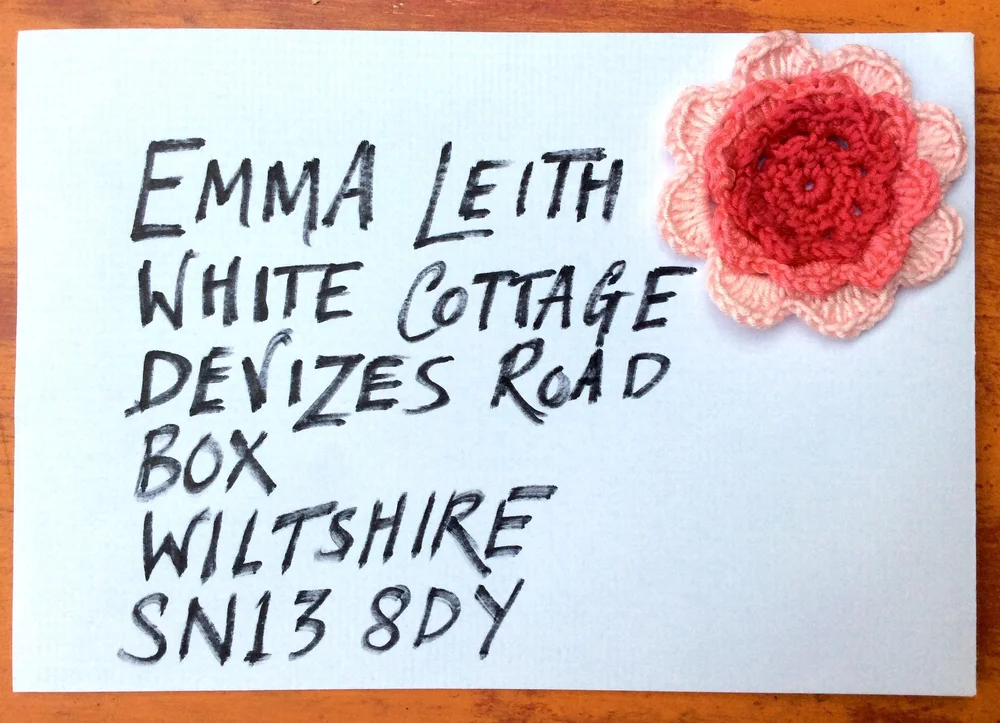 EMMA LEITH
WHITE COTTAGE
DEVIZES ROAD
BOX
WILTSHIRE
SN13 8DY